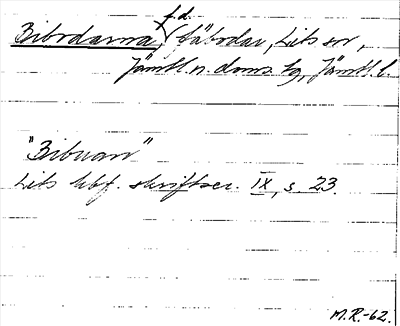 Bibodarna, f.d. fäbodar, Lits sn,
Jämtl. n. doms. tg, Jämtl. l.
"Bibuan"
Lits hbf. skriftser. IX, s. 23.
M.R.-62.